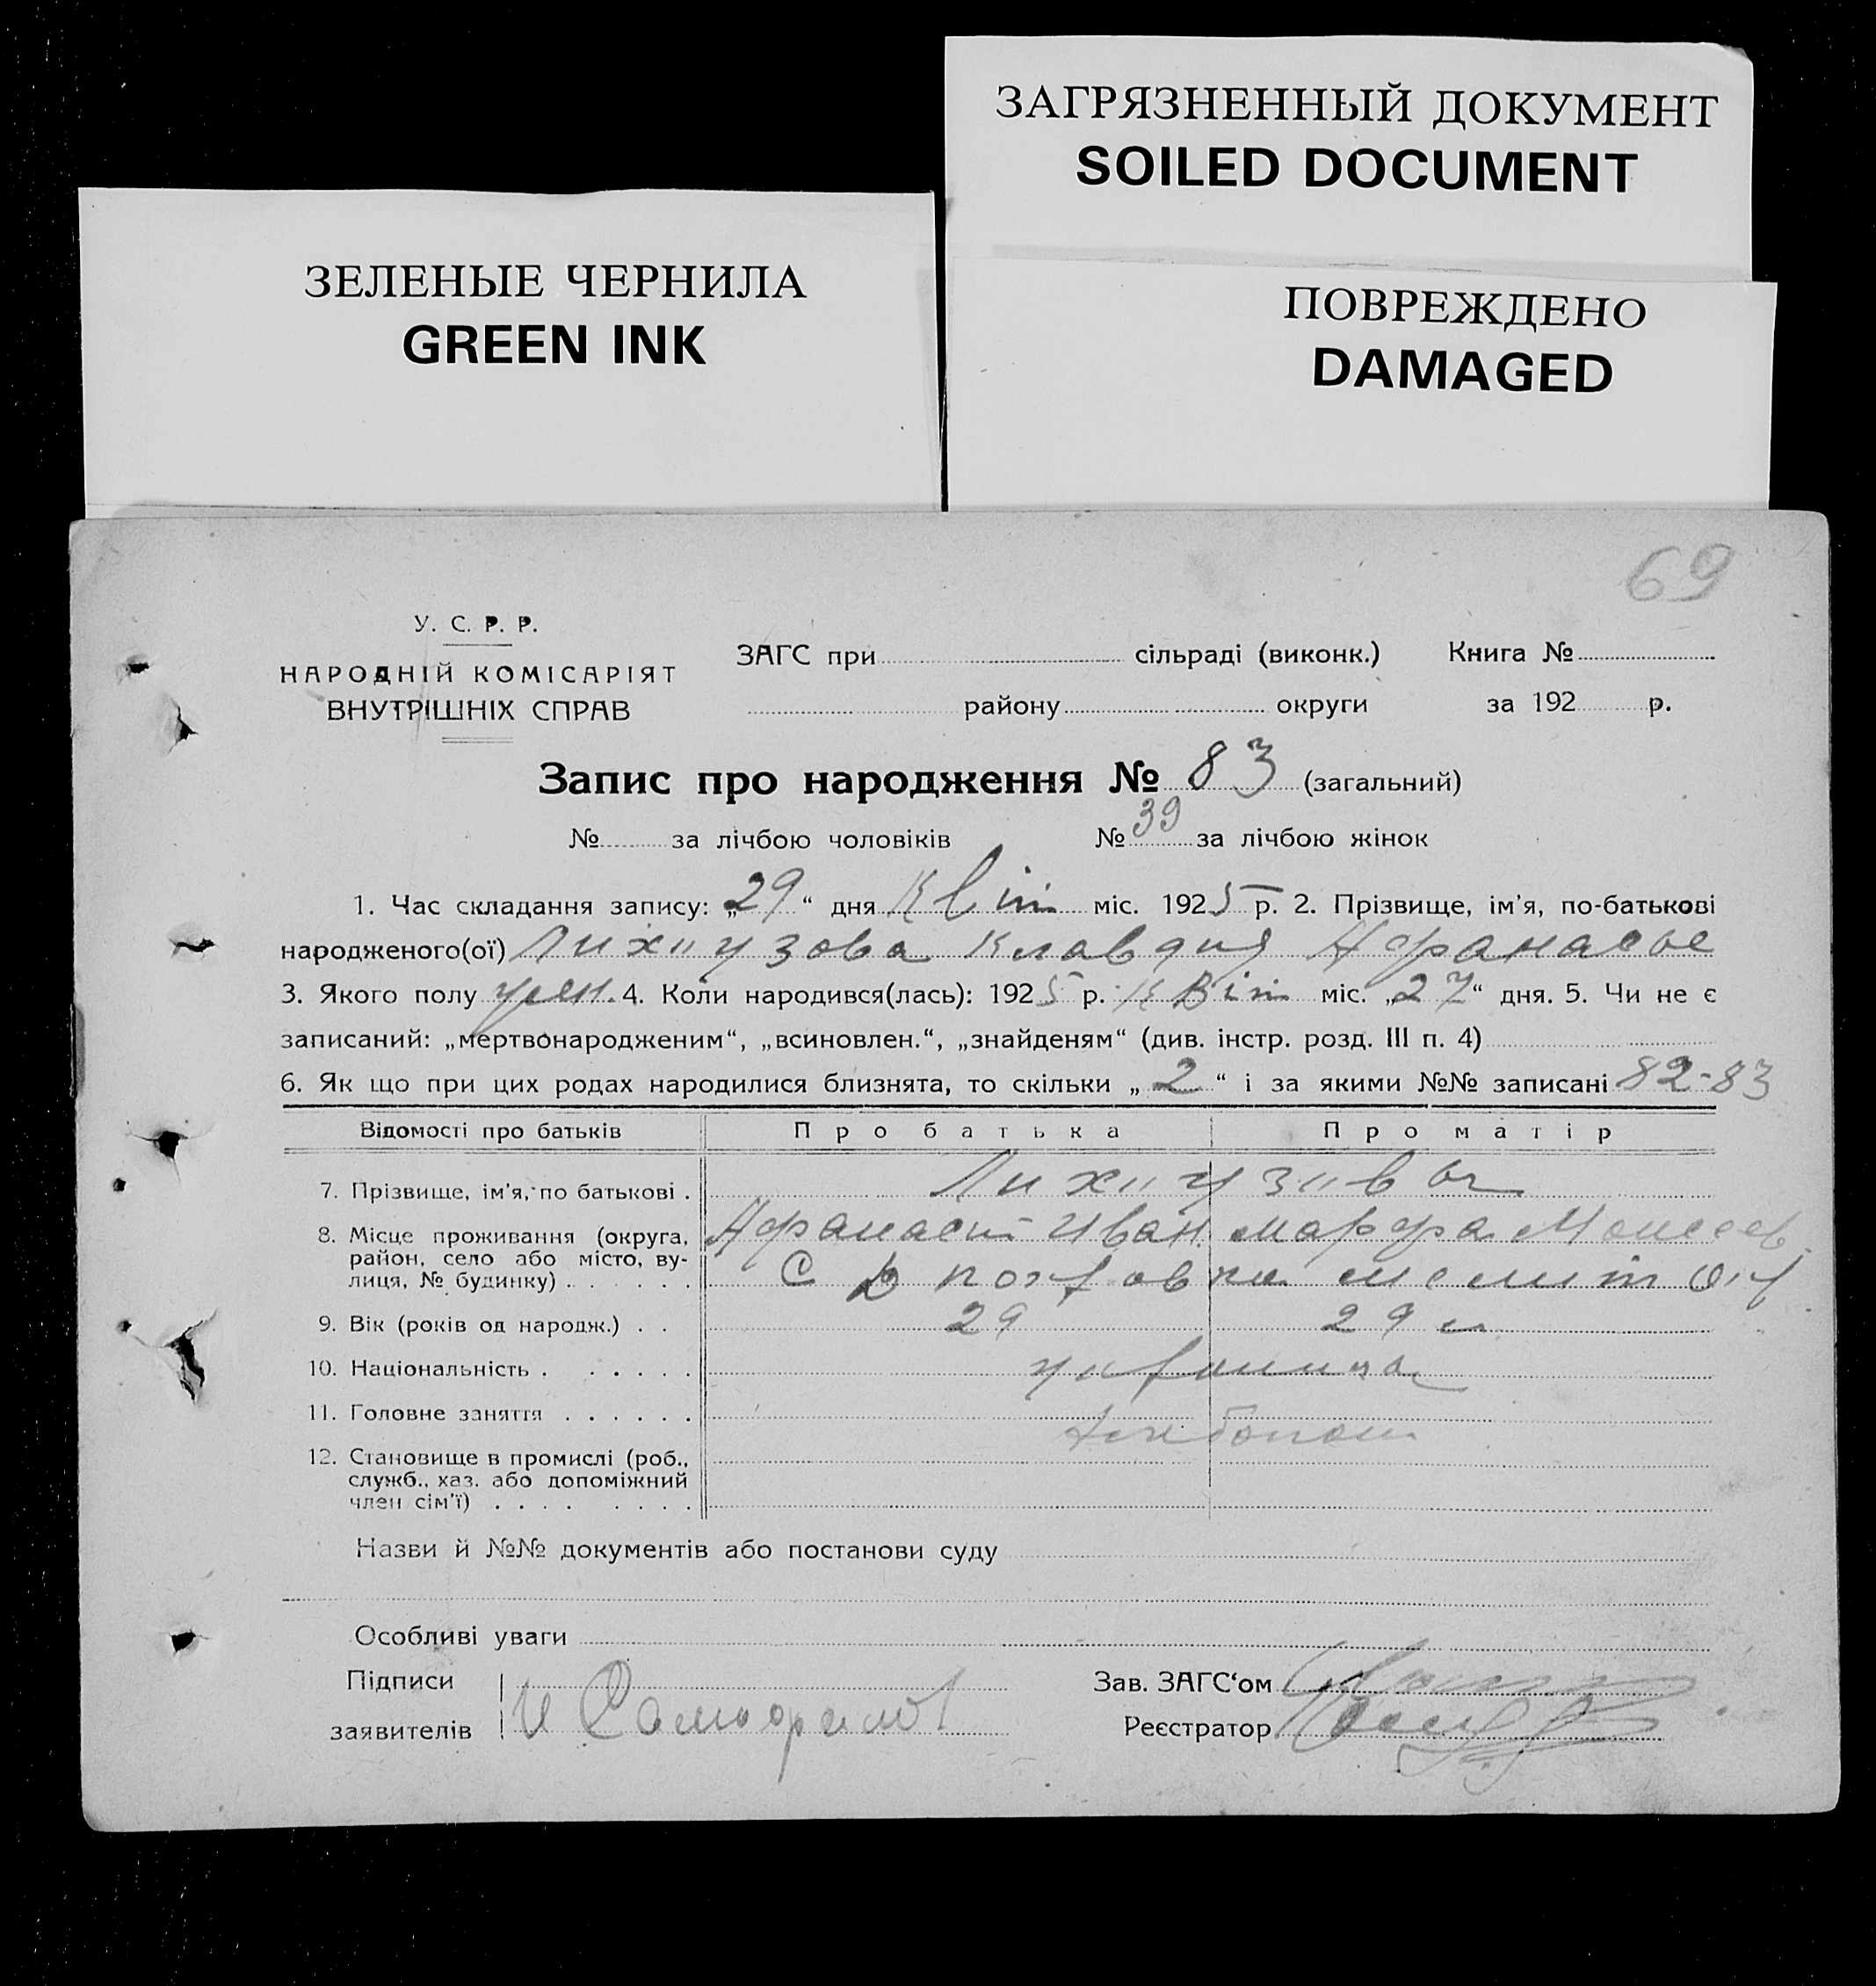 ЗАГРЯЗНЕННЫЙ ДОКУМЕНТ
SOILED DOCUMENT
ЗЕЛЕНЫЕ ЧЕРНИЛА
GREEN INK
ПОВРЕЖДЕНО
DAMAGED
69
У. С. Р. Р.
НАРОДНІЙ КОМІСАРІЯТ
ВНУТРІШНІХ СПРАВ
ЗАГС при сільраді (виконк.) Книга №
району округи за 192 р.
Запис про народження № 83 (загальний)
№ за лічбою чоловіків № 39 за лічбою жінок
1. Час складання запису: „29“ дня Квіт міс. 1925 р. 2. Прізвище, ім'я, по-батькові
народженого(ої) Клавдия Афанасье
3. Якого полу 4. Коли народився(лась): 1925 р. Квіт міс. „27“ дня. 5. Чи не є
записаний: „мертвонародженим“, „всиновлен.“, „знайденям“ (див. інстр. розд. III п. 4)
6. Як що при цих родах народилися близнята, то скільки „2“ і за якими №№ записані 82-83
Відомості про батьків Про батька Про матір
7. Прізвище, ім'я, по батькові .
8. Місце проживання (округа, Афанасий Иван. Марфа Моисеев.
район, село або місто, ву-
лиця, № будинку) . . . . . С
9. Вік (років од народж.) . . 29 29
10. Національність . . . . . .
11. Головне заняття . . . . . .
12. Становище в промислі (роб.,
служб., хаз. або допоміжний
член сім'ї) . . . . . . . .
Назви й №№ документів або постанови суду
Особливі уваги
Підписи
заявителів
Зав. ЗАГС‘ом
Реєстратор